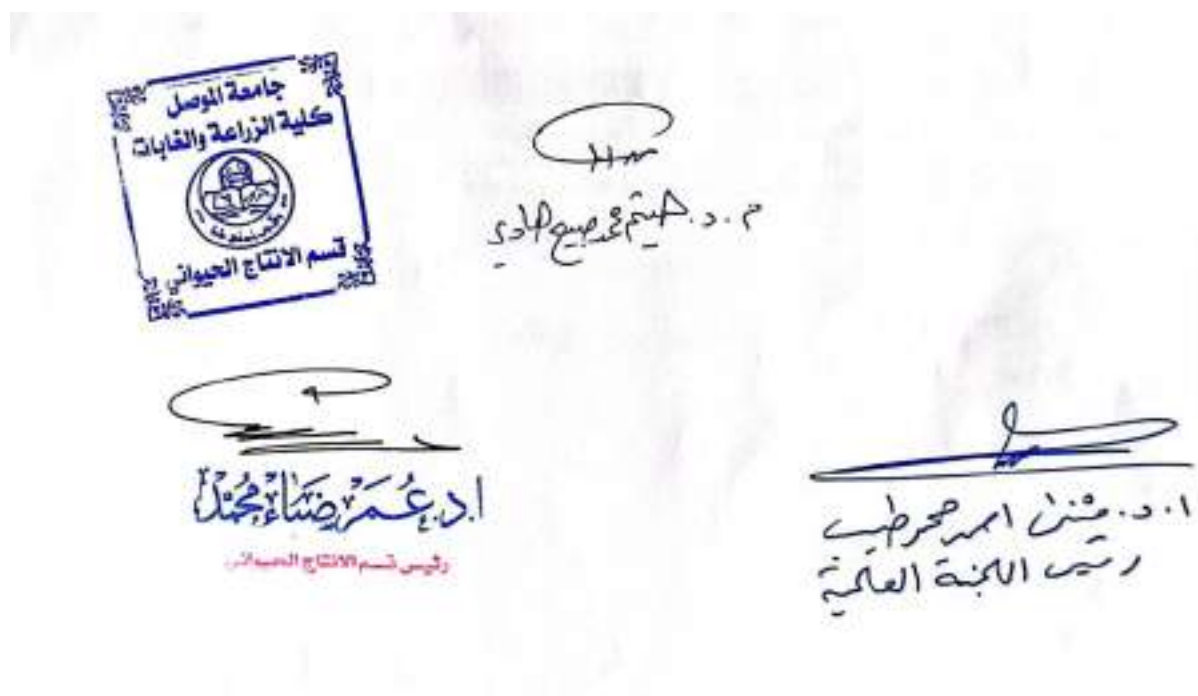 جامعة الموصل
كلية الزراعة والغابات
قسم الانتاج الحيواني
م.د. هيثم محمد صبيح هادي
ا.د. عُمَر ضيَاء مُحمَّد
رئيس قسم الانتاج الحيواني
ا.د. مثنى احمد محمد طيب
رئيس اللجنة العلمية